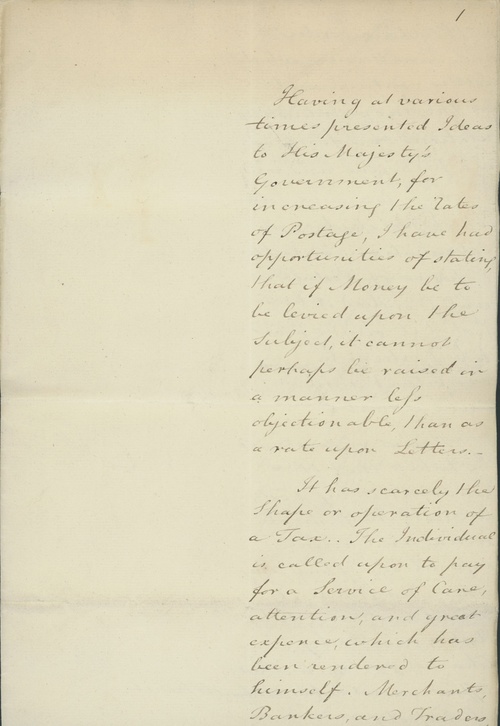 1
Having at various
times presented Ideas
to His Majesty's
Government, for
increasing the Rates
of Postage, I have had
opportunities of stating,
that if Money be to
be levied upon the
Subject, it cannot
perhaps be raised in
a manner less
objectionable, than as
a rate upon Letters._
It has scarcely the
Shape or operation of
a Tax.. The Individual
is called upon to pay
for a Service of Care,
attention, and great
expence, which has
been rendered to
himself. Merchants,
Bankers, and Traders